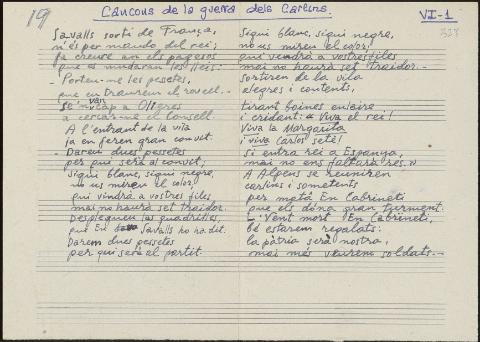 19
Cançons de la guerra dels Carlins.
VI-1
328
Savalls sortí de França,
n'és per mando del rei;
fa creure an els pagesos
que es mudaran les lleis:
- Porteu-me les pessetes,
que en traurem el ravell. -
Se'n van cap a Olzeres
a cercar-ne el Consell.
A l'entrant de la vila
ja en feren gran convit.
- Darem dues pessetes
per qui serà al convit,
sigui blanc, sigui negre,
no us mireu el color,
qui vindrà a vostres files
mai no haurà set traidor.
Desplegueu las quadrilles,
què En Savalls ho ha dit.
Darem dues pessetes
per qui serà al partit.
Sigui blanc, sigui negre,
no us mireu el color,
qui vendrà a vostres files
mai no haurà set traidor. -
Sortiren de la vila
alegres i contents,
tirant boines enlaire
i cridant: « Viva el rei!
Viva la Margarita
i viva Carlos setè!
Si entra rei a Espanya,
mai no ens faltarà res. »
A Alpens se reuniren
carlins i sometents
per matà En Cabrineti
que els dóna gran turment.
- Vent mort En Cabrineti,
bé estarem regalats:
la pàtria serà nostra,
mai més veurem soldats. -